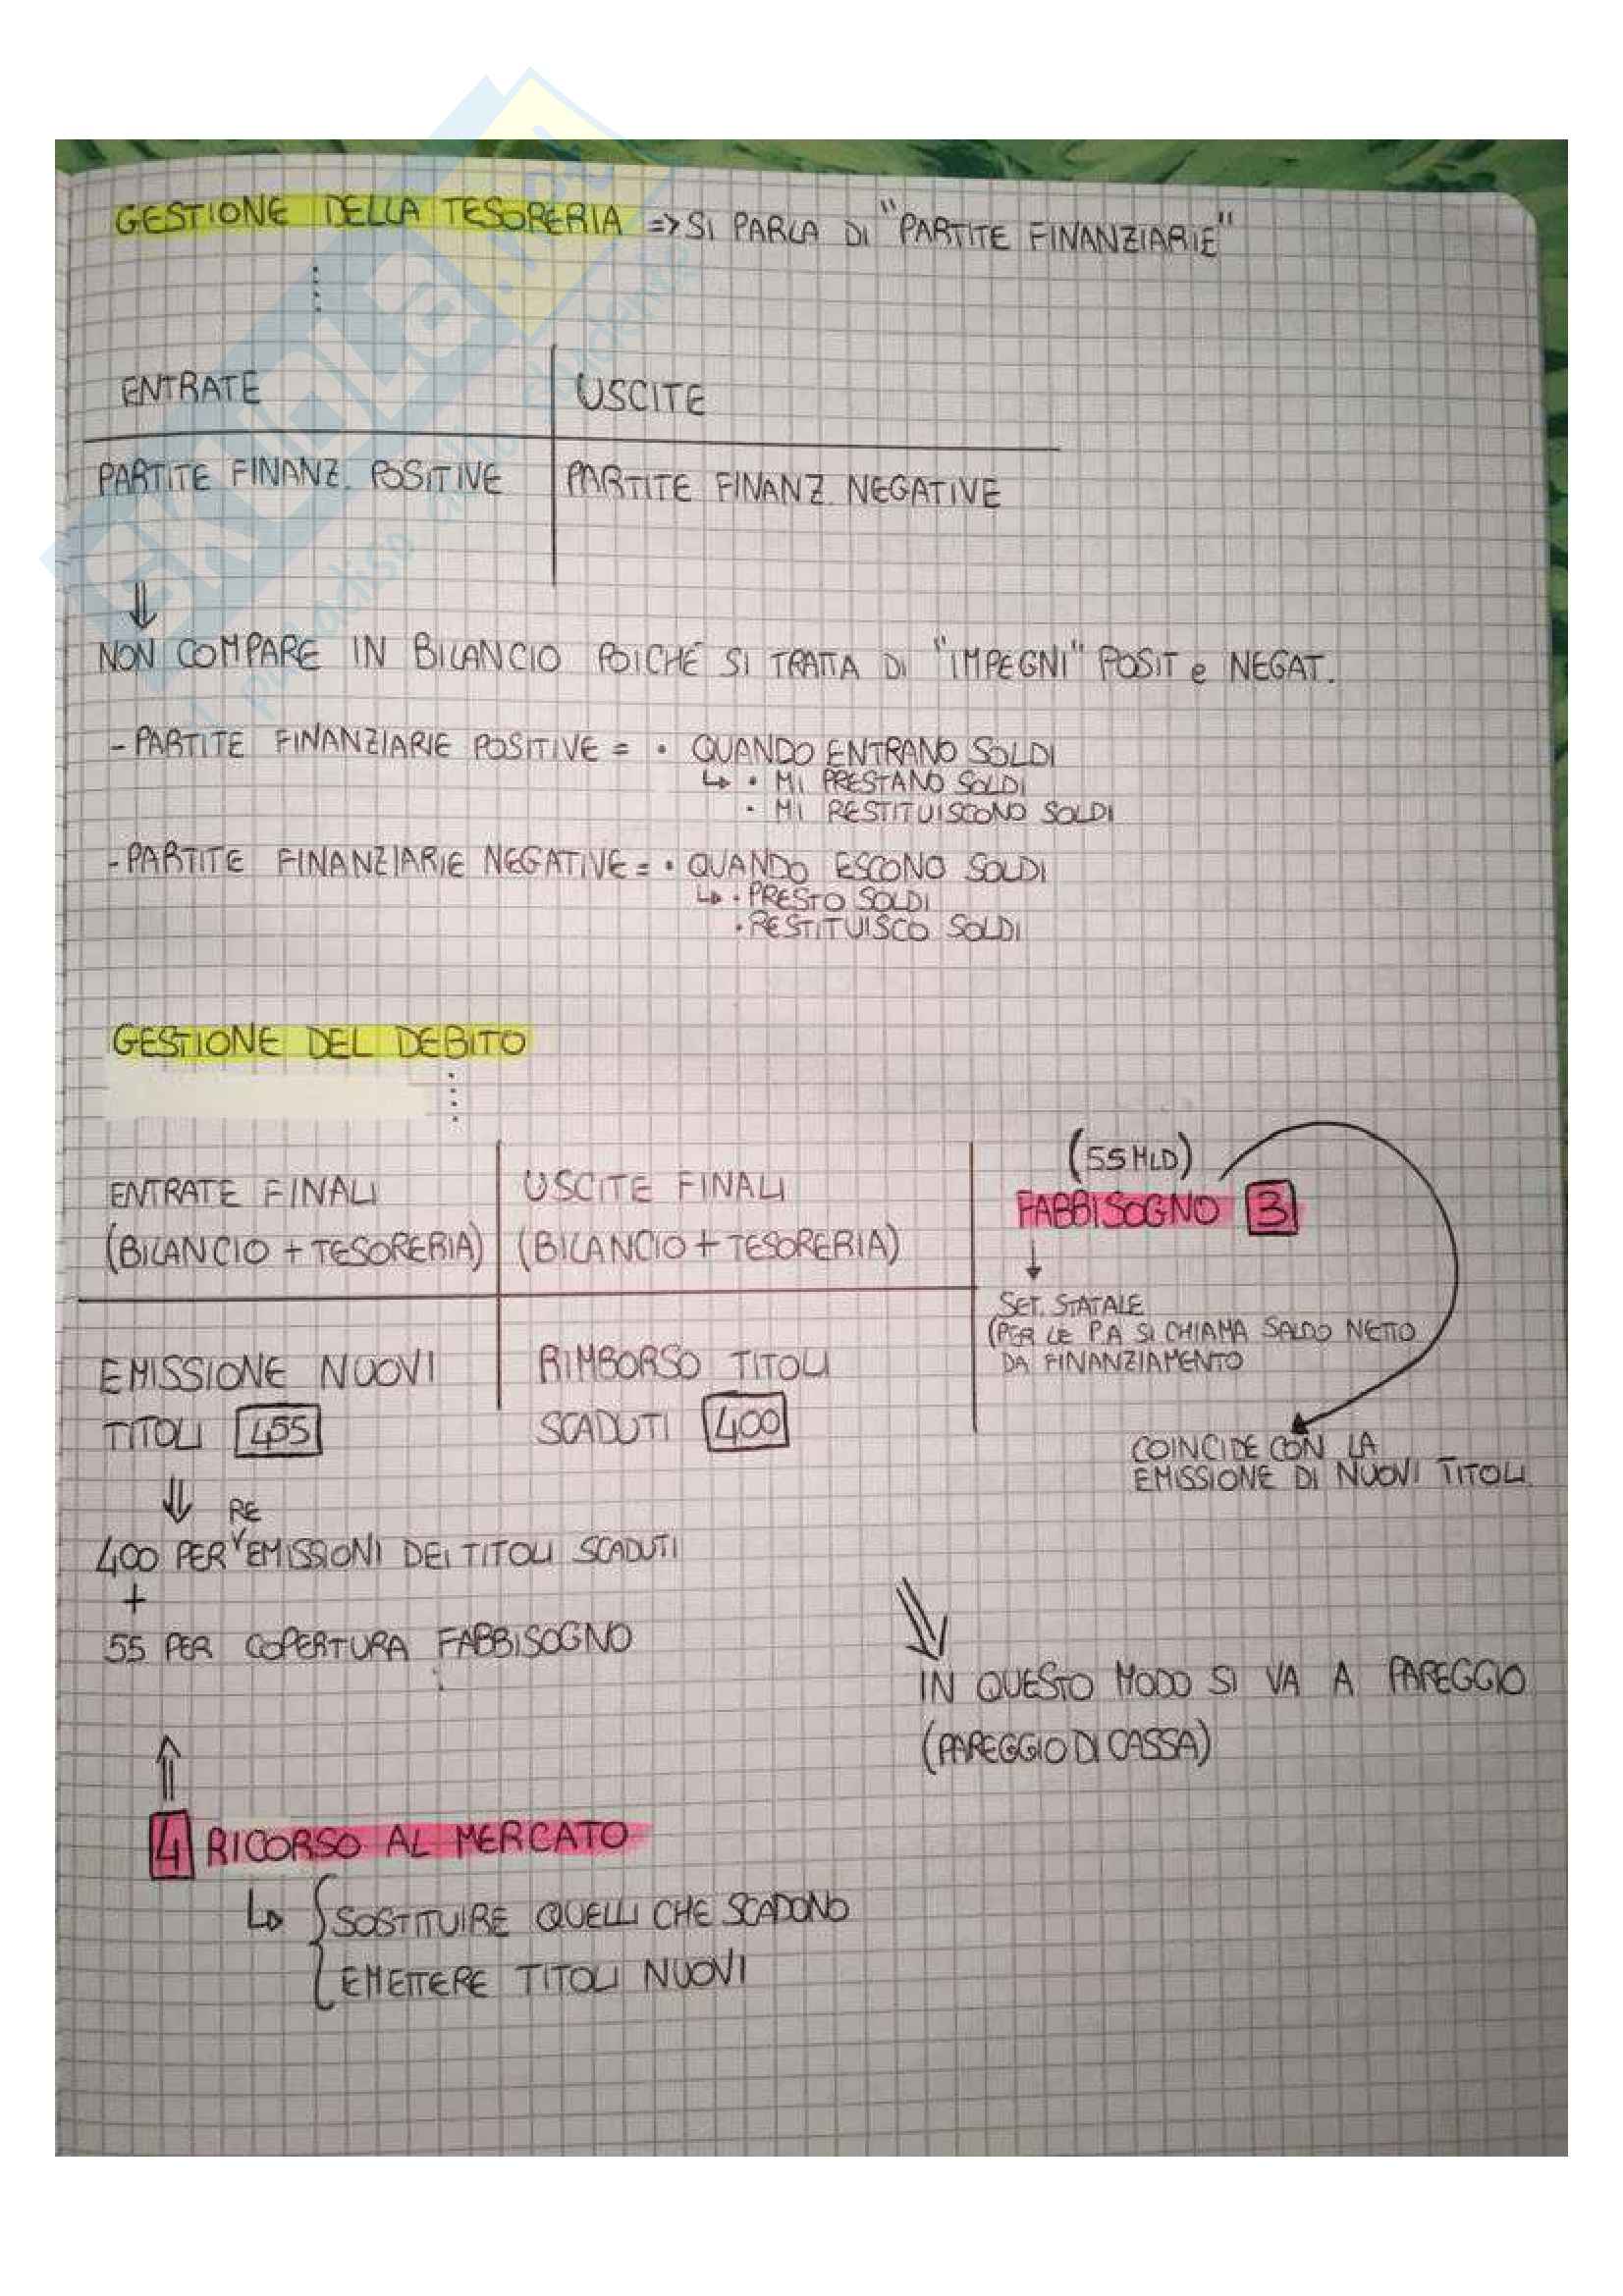 GESTIONE DELLA TESORERIA => SI PARLA DI "PARTITE FINANZIARIE"
ENTRATE
USCITE
PARTITE FINANZ. POSITIVE
PARTITE FINANZ. NEGATIVE
NON COMPARE IN BILANCIO POICHÉ SI TRATTA DI "IMPEGNI" POSIT e NEGAT.
- PARTITE FINANZIARIE POSITIVE = • QUANDO ENTRANO SOLDI
↳ • MI PRESTANO SOLDI
• MI RESTITUISCONO SOLDI
- PARTITE FINANZIARIE NEGATIVE = • QUANDO ESCONO SOLDI
↳ • PRESTO SOLDI
• RESTITUISCO SOLDI
GESTIONE DEL DEBITO
ENTRATE FINALI
(BILANCIO + TESORERIA)
USCITE FINALI
(BILANCIO + TESORERIA)
(55 MLD)
FABBISOGNO 3
SET. STATALE
(PER LE P.A SI CHIAMA SALDO NETTO
DA FINANZIAMENTO
EMISSIONE NUOVI
TITOLI 455
RIMBORSO TITOLI
SCADUTI 400
COINCIDE CON LA
EMISSIONE DI NUOVI TITOLI.
RE
400 PER EMISSIONI DEI TITOLI SCADUTI
+
55 PER COPERTURA FABBISOGNO
IN QUESTO MODO SI VA A PAREGGIO
(PAREGGIO DI CASSA)
4 RICORSO AL MERCATO
↳ SOSTITUIRE QUELLI CHE SCADONO
EMETTERE TITOLI NUOVI
SKUOLA.net
il paradiso dello studente